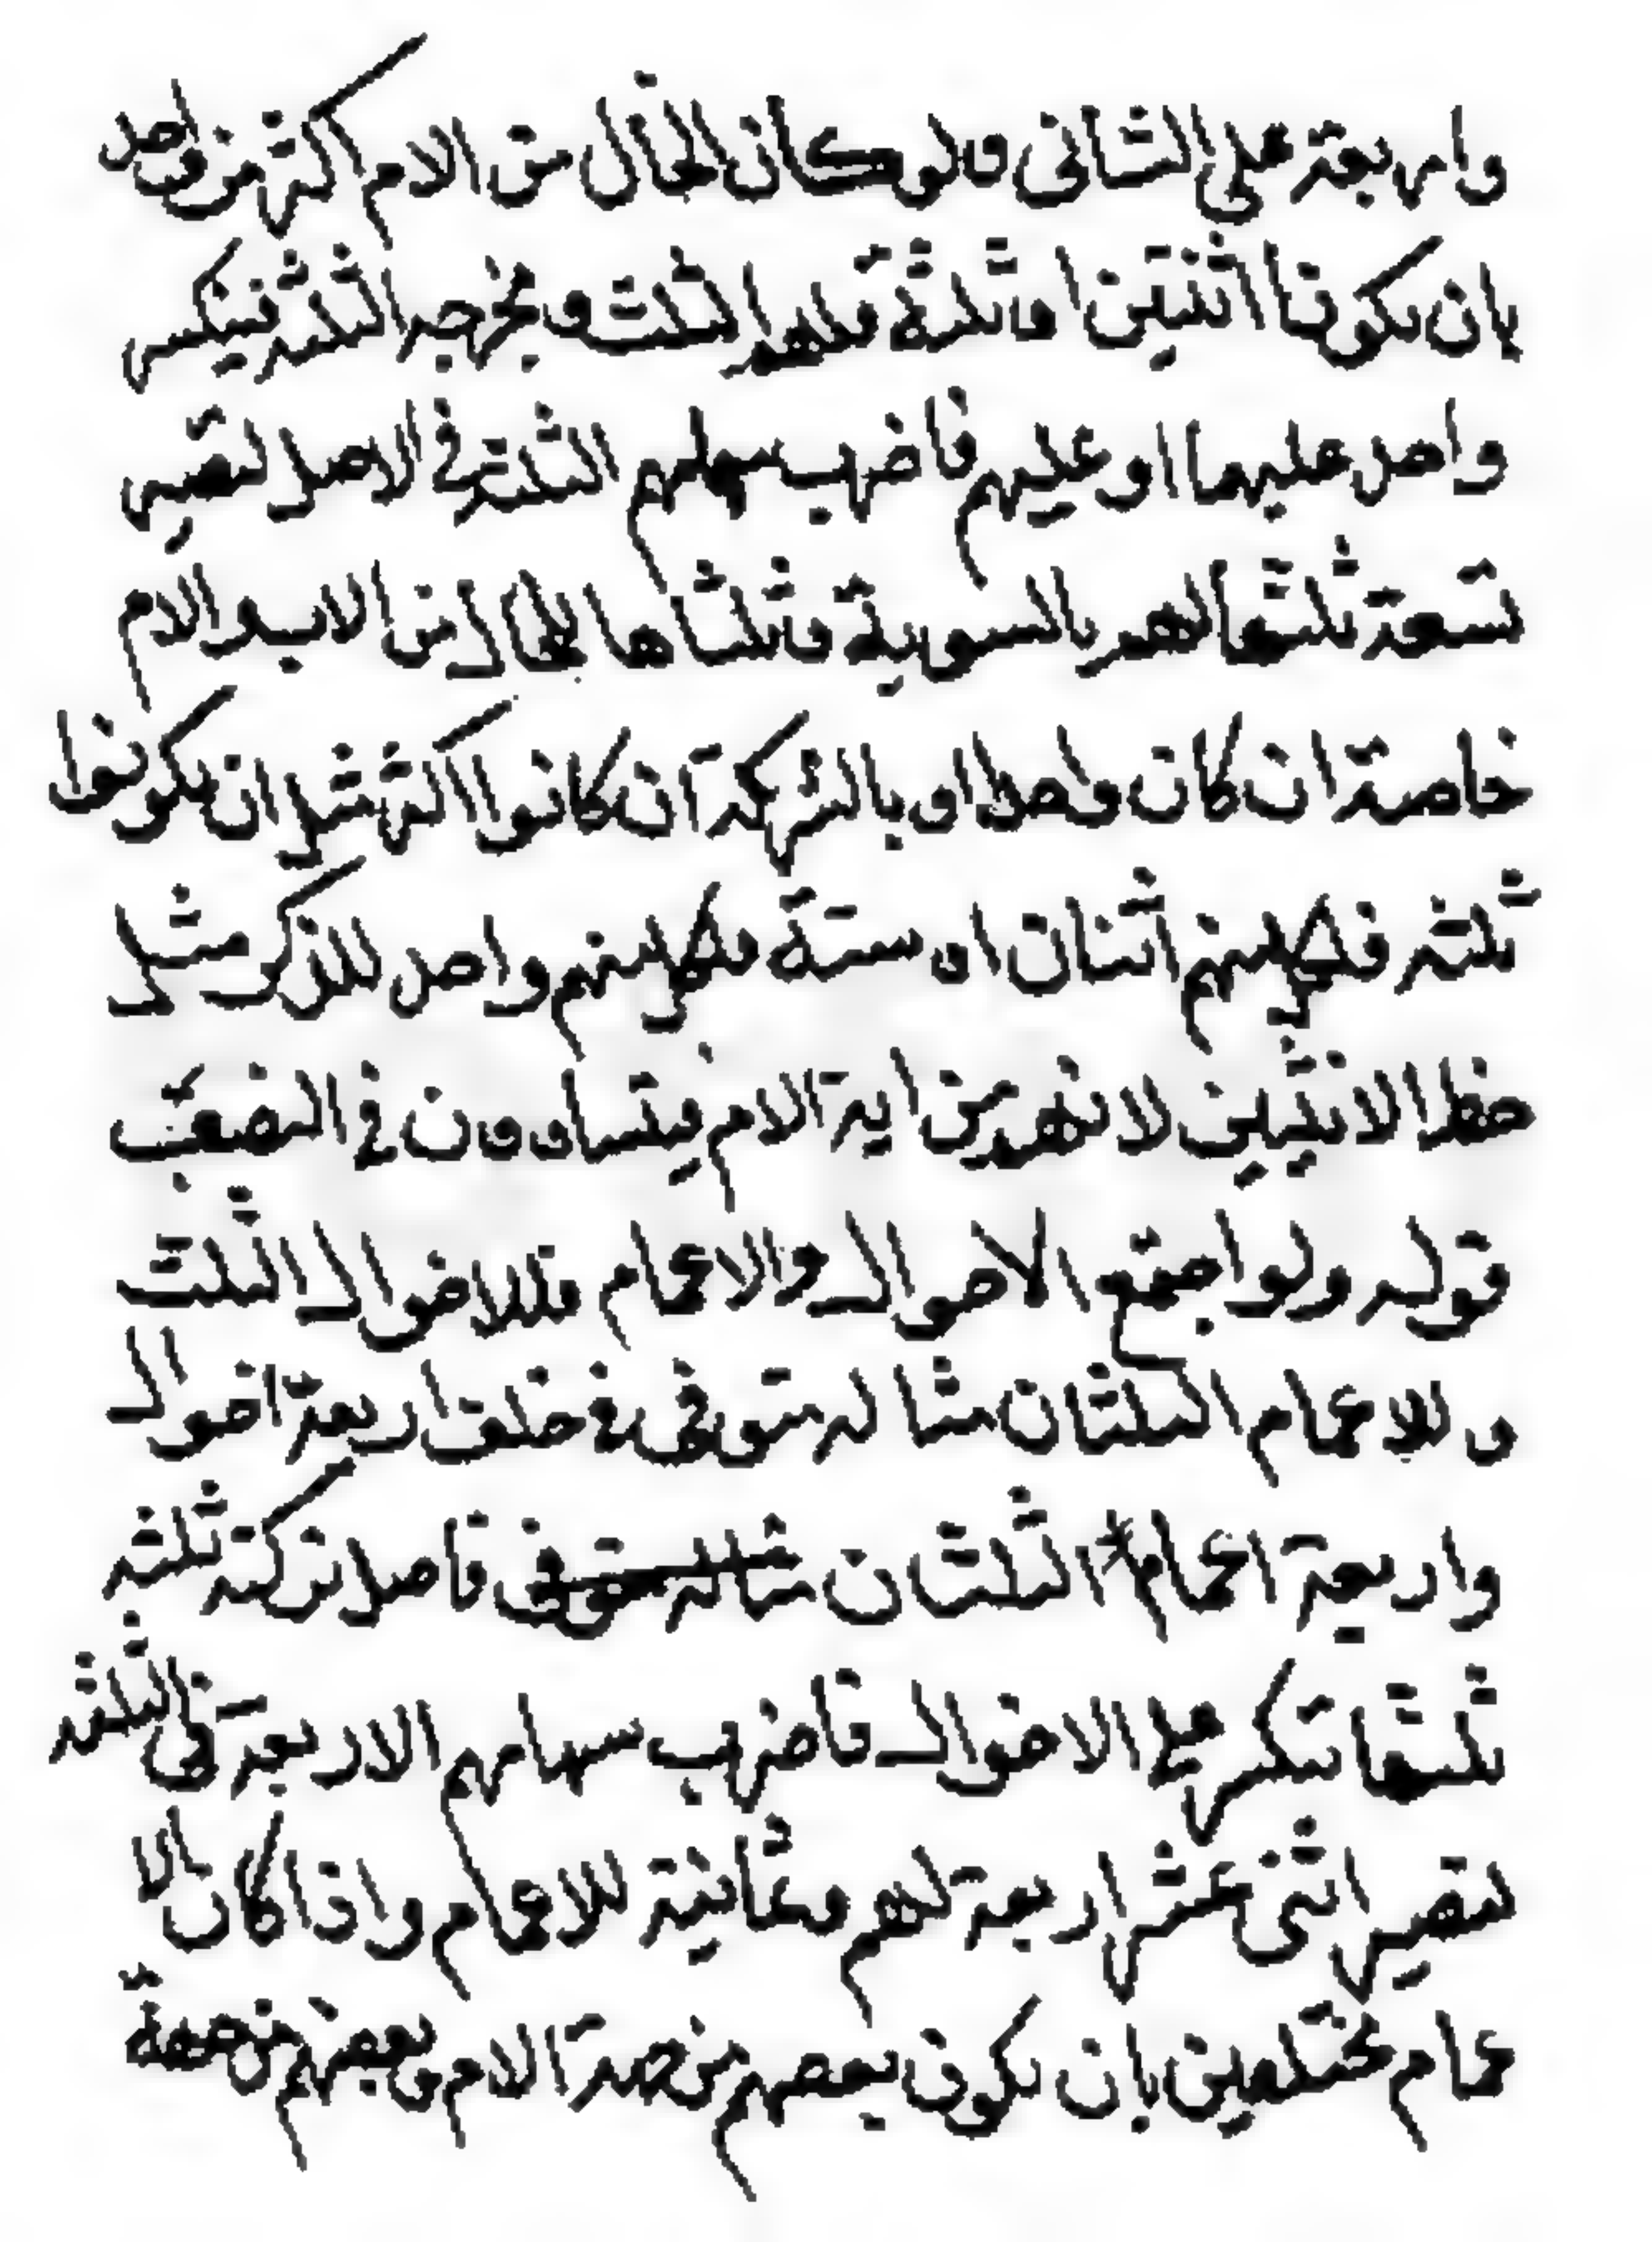 واربعة على الثانى ولو كان الخال من الام اكثر من واحد
بان يكونا اثنين او ثلثة فلهم الثلث ومخرجه الثلثة فينكسر
واحد عليهما او عليهم فاضرب سهلهم الثلثة فى الاصل لتصير
تسعة ثلثها لهم بالسوية وثلثاها للخال من الاب والام
خاصة ان كان واحدا او بالشركة ان كانوا اكثر مثل ان يكونوا
ثلثة فلكل منهم اثنان او ستة فلكل منهم واحد للذكر مثل
حظ الانثيين لانهم من اية الام فيتساوون فى النصيب
قوله ولو اجتمع الاخوال والاعمام فللاخوال الثلث
وللاعمام الثلثان مثاله متوفى خلف اربعة اخوال
واربعة اعمام الثلثان مثاله متوفى فاصل تركته ثلثه
ثلثها تنكسر على الاخوال فاضرب سهامهم الاربعة فى الثلثه
لتصير اثنى عشر اربعة لهم وثمانية للاعمام واذا كان الا
عمام مختلفين بان يكون بعضهم من جهة الام وبعضهم من جهة